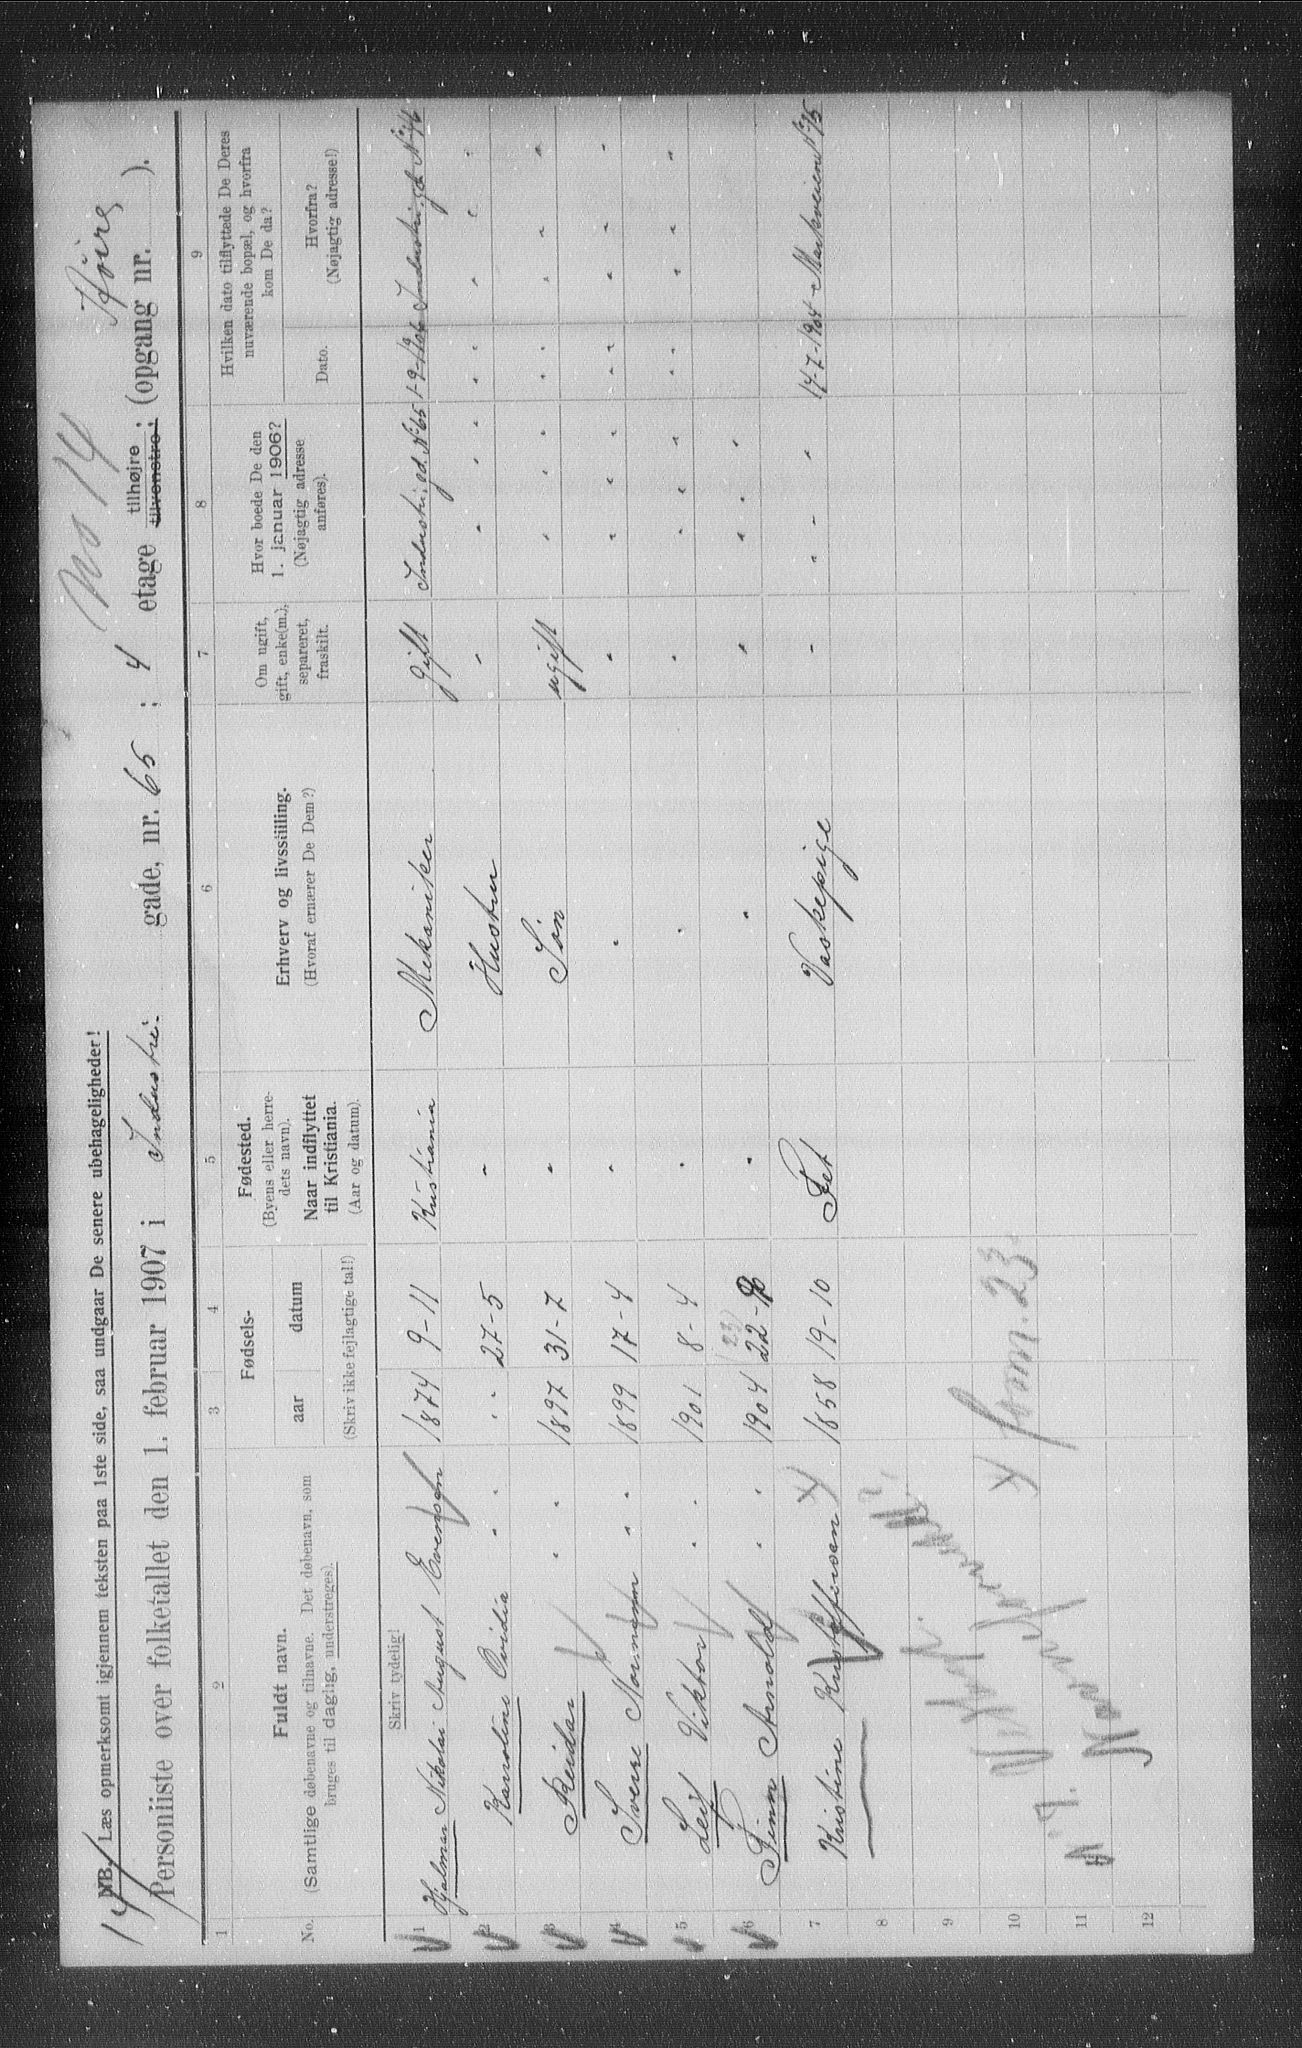 14
No 14
Høire
NB. Læs opmerksomt igjennem teksten paa 1ste side, saa undgaar De senere ubehageligheder!
Personliste over folketallet den 1. februar 1907 i Industri- gade, nr. 65 ; 4 etage tilhøjre ; tilvenstre ; (opgang nr. ).
1 2 3 4 5 6 7 8 9
No.
Fuldt navn.
(Samtlige døbenavne og tilnavne. Det døbenavn, som
bruges til daglig, understreges).
Fødsels-
aar datum
(Skriv ikke fejlagtige tal!)
Fødested.
(Byens eller herre-
dets navn).
Naar indflyttet
til Kristiania.
(Aar og datum).
Erhverv og livsstilling.
(Hvoraf ernærer De Dem?)
Om ugift,
gift, enke(m.),
separeret,
fraskilt.
Hvor boede De den
1. januar 1906?
(Nøjagtig adresse
anføres).
Hvilken dato tilflyttede De Deres
nuværende bopæl, og hvorfra
kom De da?
Dato.
Hvorfra?
(Nøjagtig adresse!)
Skriv tydelig!
1 Hjalmar Nikolai August Evensen 1874 9-11 Kristiania Mekaniker gift Industri.gd. No 65 1-9-1906 Industri.gd. No 46
2 Karoline Ovidia " " " 27-5 " Hustru " " " " " " " " "
3 Reidar " " 1897 31-7 " Søn ugift " " " " " " " "
4 Sverre Normann " " 1899 17-4 " " " " " " " " " " "
5 Leif Viktor " " 1901 8-4 " " " " " " " " " " "
(23)
6 Finn Arnold " " 1904 22- " " " " " "
7 Kristine Kristoffersen 1858 19-10 Fet Vaskepige - " - " 14-7-1904 Markveien No 15
8
9
10
11
12
x form. 23.